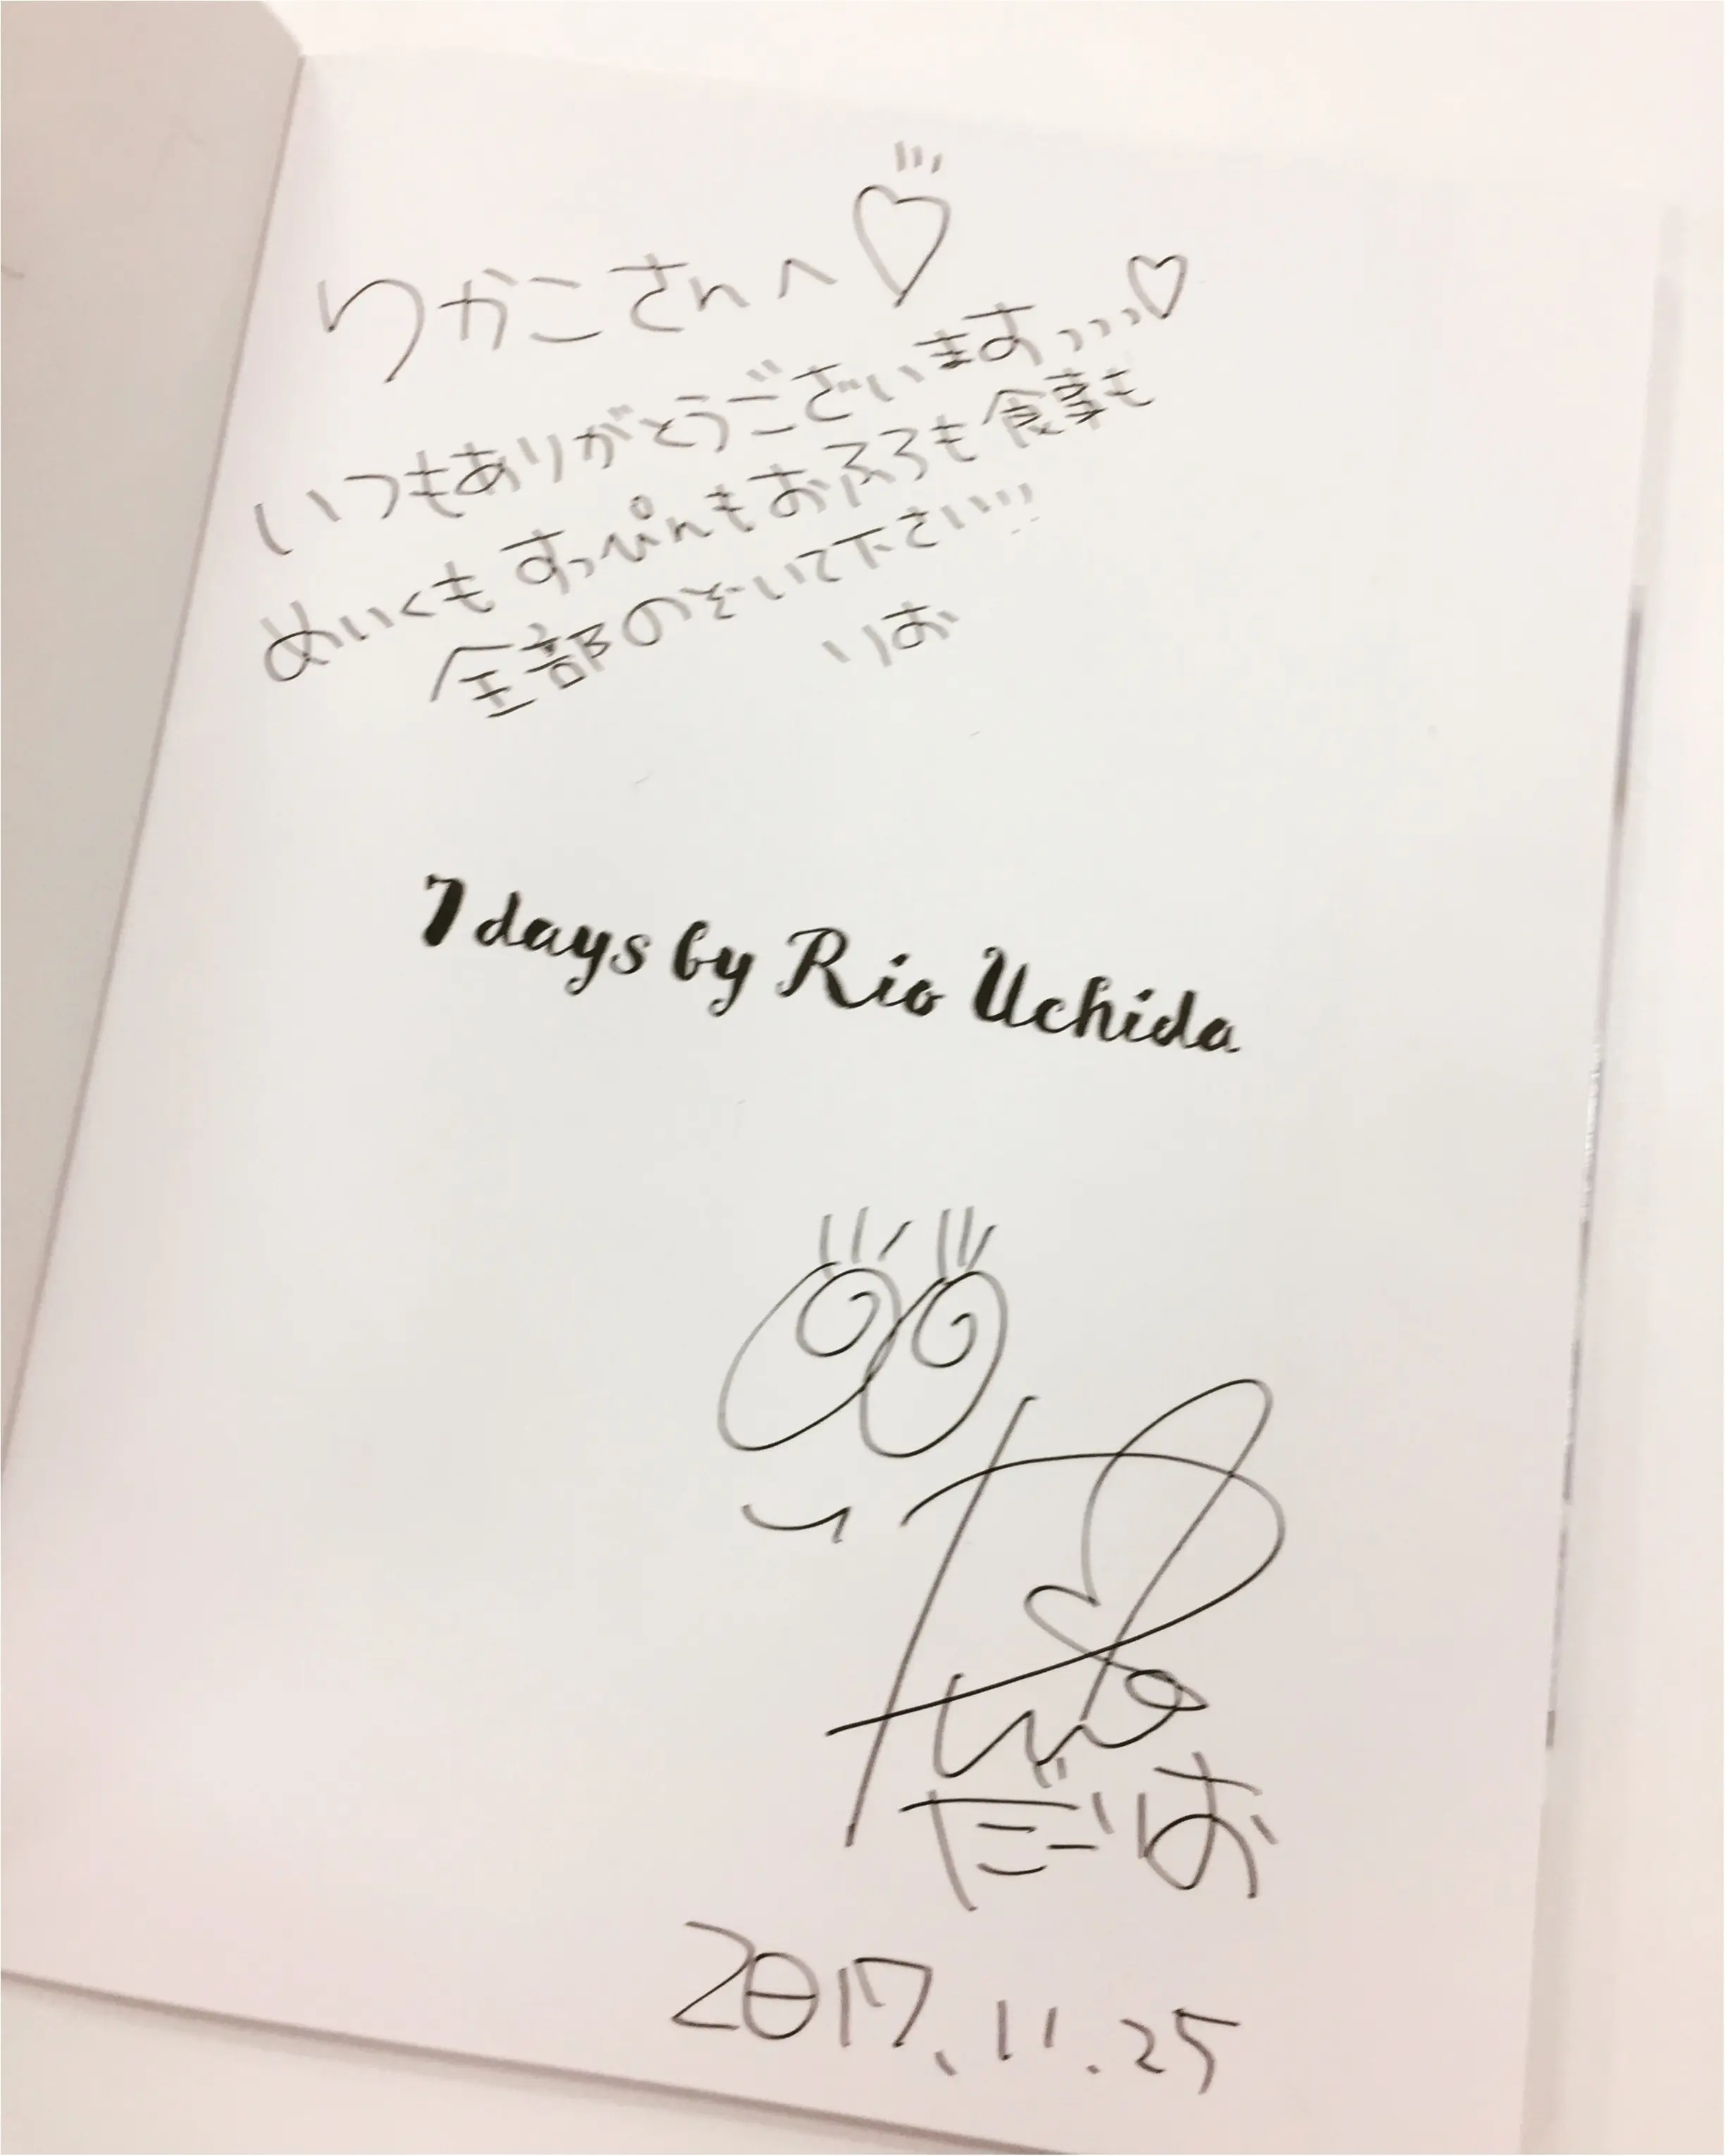 りかこさんへ♡
いつもありがとうございますっ...♡
めいくもすっぴんもおふろも食事も
全部のぞいて下さい...
りお
7 days by Rio Uchida
だごりお
2017.11.25